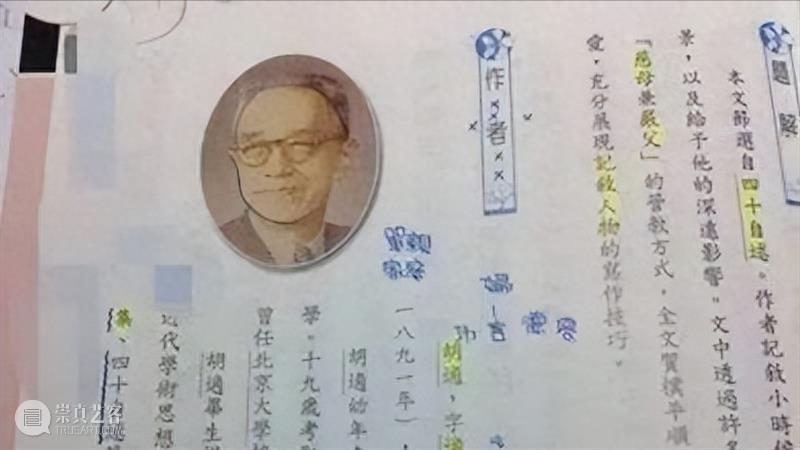 題解
本文節選自四十自述。作者記敘小時候
景，以及給予他的深遠影響。文中透過許多
「慈母兼嚴父」的管教方式，全文質樸平順
愛，充分展現記敘人物的寫作技巧。
作者
胡適，字適
一八九一年），
胡適幼年
學。十九歲考
曾任北京大學校
胡適畢生
近代學術思想
集、四十自述
單親
家庭
婦
言
德
容
功
崇真艺客
TRUEART.COM